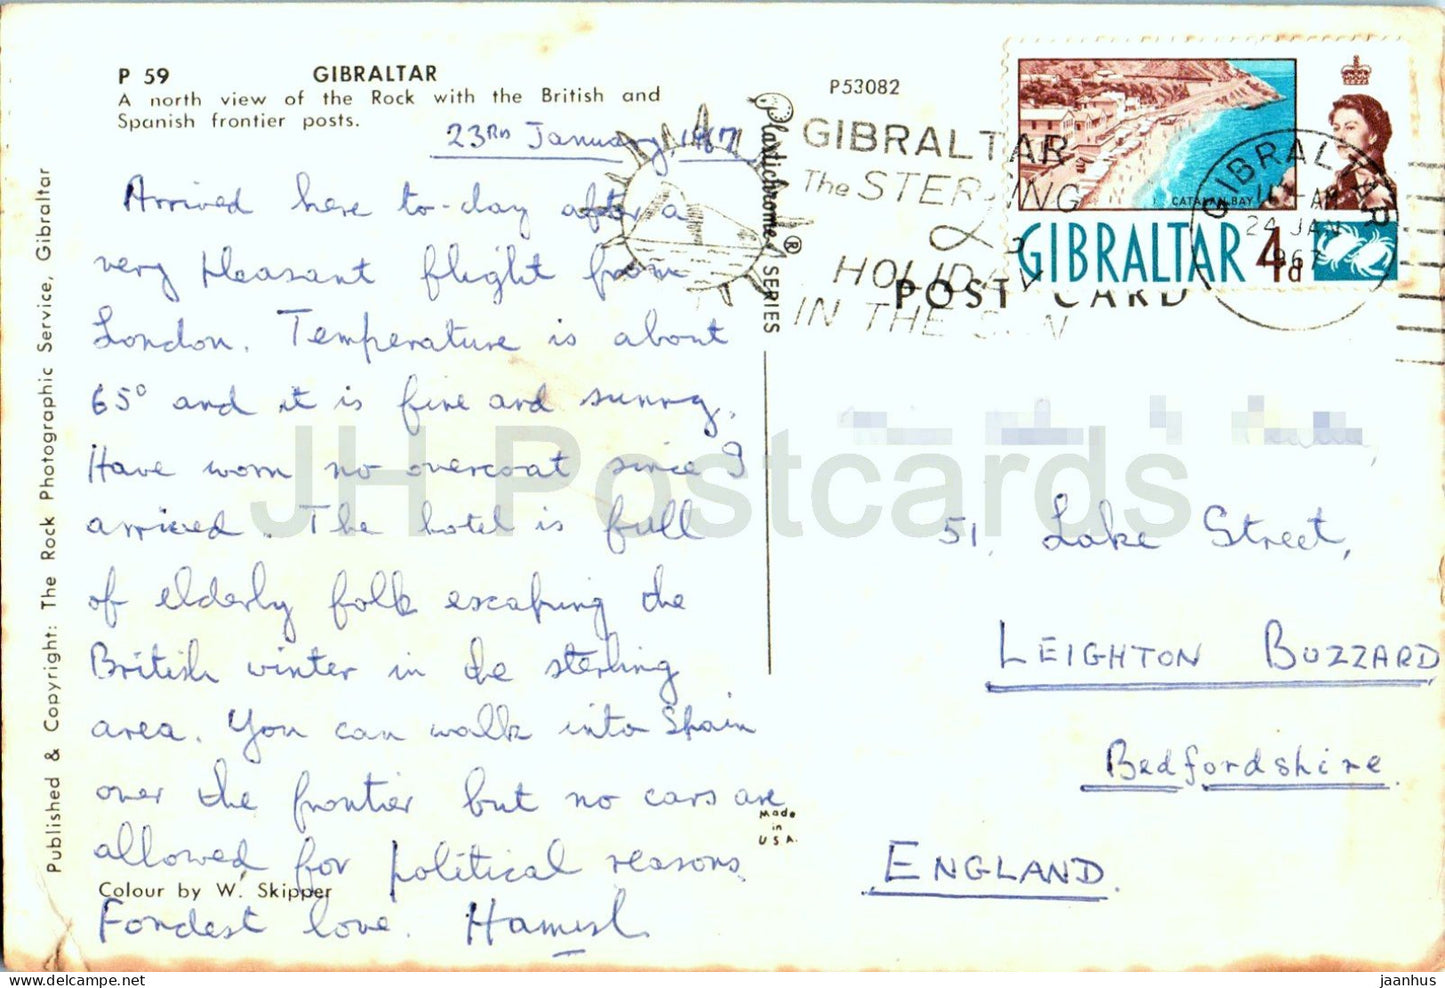 P 59 GIBRALTAR
A north view of the Rock with the British and
Spanish frontier posts.
P53082
23RD January, 1967
Arrived here to-day after a
very pleasant flight from
London. Temperature is about
65° and it is fine and sunny.
Have worn no overcoat since I
arrived. The hotel is full
of elderly folk escaping the
British winter in the sterling
area. You can walk into Spain
over the frontier but no cars are
allowed for political reasons.
Fondest love. Hamish
Colour by W. Skipper
Published & Copyright: The Rock Photographic Service, Gibraltar
Plastichrome® SERIES
Made
in
U.S.A.
GIBRALTAR
The STERLING
HOLIDAY
IN THE SUN
POST CARD
CATALAN BAY
GIBRALTAR 4d
GIBRALTAR
AM
24 JAN
1967
51, Lake Street,
LEIGHTON BUZZARD
Bedfordshire
ENGLAND.
JH Postcards
delcampe.net
jaanhus